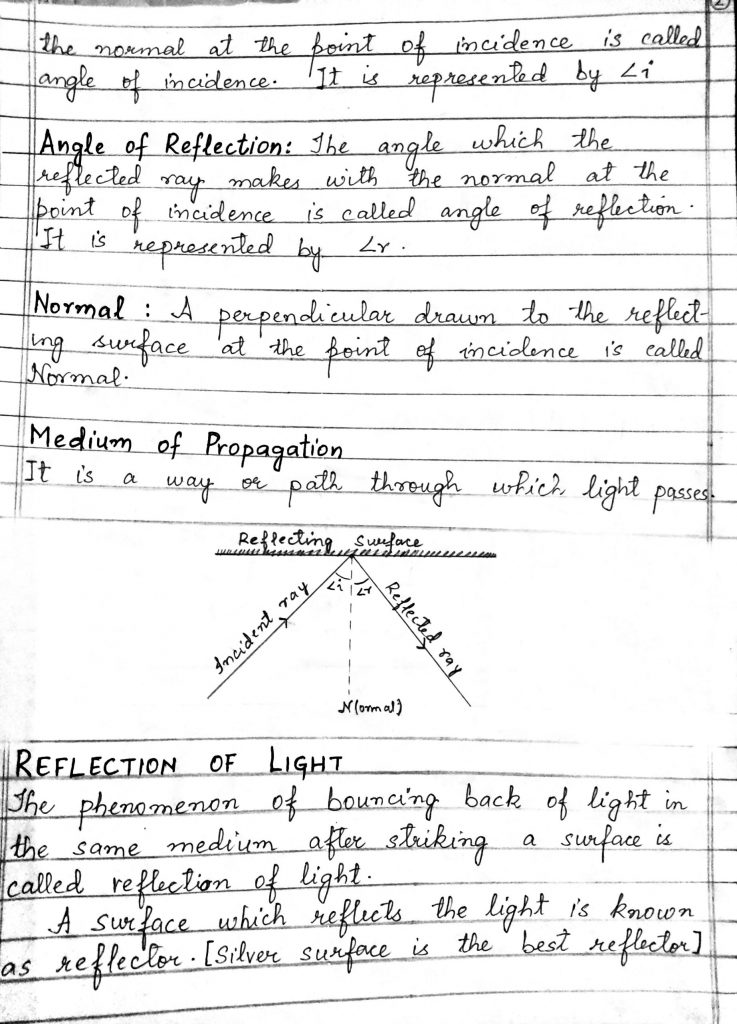 2
the normal at the point of incidence is called
angle of incidence. It is represented by ∠i
Angle of Reflection: The angle which the
reflected ray makes with the normal at the
point of incidence is called angle of reflection.
It is represented by ∠r.
Normal : A perpendicular drawn to the reflect-
ing surface at the point of incidence is called
Normal.
Medium of Propagation
It is a way or path through which light passes.
Reflecting Surface
Incident ray
∠i
∠r
Reflected ray
N(ormal)
REFLECTION OF LIGHT
The phenomenon of bouncing back of light in
the same medium after striking a surface is
called reflection of light.
A surface which reflects the light is known
as reflector. [Silver surface is the best reflector]